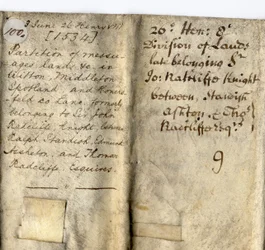 102.
3 June 26 Henry VIII
[1534]
Partition of messu-
ages land, &c in
Wilton, Middleton
Shotland and
as lane formerly
belonging to Sir John
Ratcliff Knight, between
Ralph Standish, Edmund
Assheton, and Thomas
Radcliffe, Esquires
20º Hen: 8º
Division of Lands
late belonging Sr
Jo: Ratcliffe Knight
between Standish
Ashton & Tho:
Ratcliffe Esqrs
9